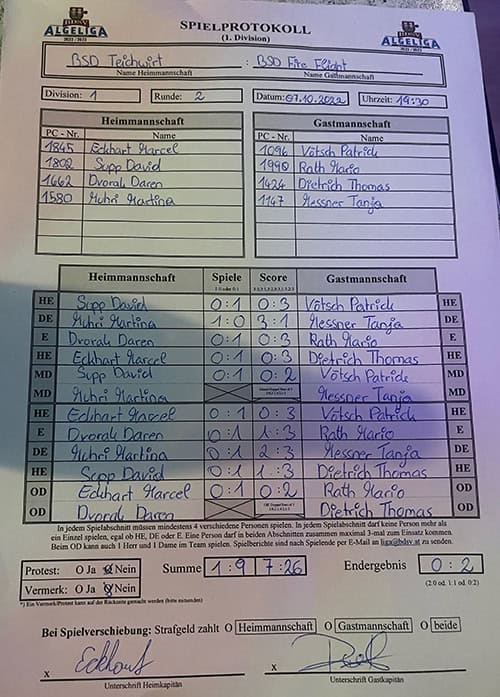 BDSV
ALGELIGA
2022 / 2023
SPIELPROTOKOLL
(1. Division)
BDSV
ALGELIGA
2022 / 2023
BSD Teichwirt : BSD Fire Flight
Name Heimmannschaft Name Gastmannschaft
Division: 1 Runde: 2 Datum: 07.10.2022 Uhrzeit: 19:30
Heimmannschaft Gastmannschaft
PC - Nr. Name PC - Nr. Name
1845 Eckhart Marcel 1096 Vötsch Patrick
1802 Supp David 1990 Rath Mario
1662 Dvorak Daren 1424 Dietrich Thomas
1580 Muhri Martina 1147 Messner Tanja
Heimmannschaft Spiele Score Gastmannschaft
1:0 oder 0:1
HE Supp David 0:1 0:3 Vötsch Patrick HE
DE Muhri Martina 1:0 3:1 Messner Tanja DE
E Dvorak Daren 0:1 0:3 Rath Mario E
HE Eckhart Marcel 0:1 0:3 Dietrich Thomas HE
MD Supp David 0:1 0:2 Vötsch Patrick MD
MD Muhri Martina Messner Tanja MD
HE Eckhart Marcel 0:1 0:3 Vötsch Patrick HE
E Dvorak Daren 0:1 1:3 Rath Mario E
DE Muhri Martina 0:1 2:3 Messner Tanja DE
HE Supp David 0:1 1:3 Dietrich Thomas HE
OD Eckhart Marcel 0:1 0:2 Rath Mario OD
OD Dvorak Daren Dietrich Thomas OD
In jedem Spielabschnitt müssen mindestens 4 verschiedene Personen spielen. In jedem Spielabschnitt darf keine Person mehr als
ein Einzel spielen, egal ob HE, DE oder E. Eine Person darf in beiden Abschnitten zusammen maximal 3-mal zum Einsatz kommen.
Beim OD kann auch 1 Herr und 1 Dame im Team spielen. Spielberichte sind nach Spielende per E-Mail an liga@bdsv.at zu senden.
Protest: O Ja O Nein Summe 1:9 7:26 Endergebnis 0:2
Vermerk: O Ja O Nein (2:0 od. 1:1 od. 0:2)
*) Ein Vermerk/Protest kann auf der Rückseite gemacht werden (bitte ankreuzen)
Bei Spielverschiebung: Strafgeld zahlt O Heimmannschaft O Gastmannschaft O beide
x Eckhart x
Unterschrift Heimkapitän Unterschrift Gastkapitän